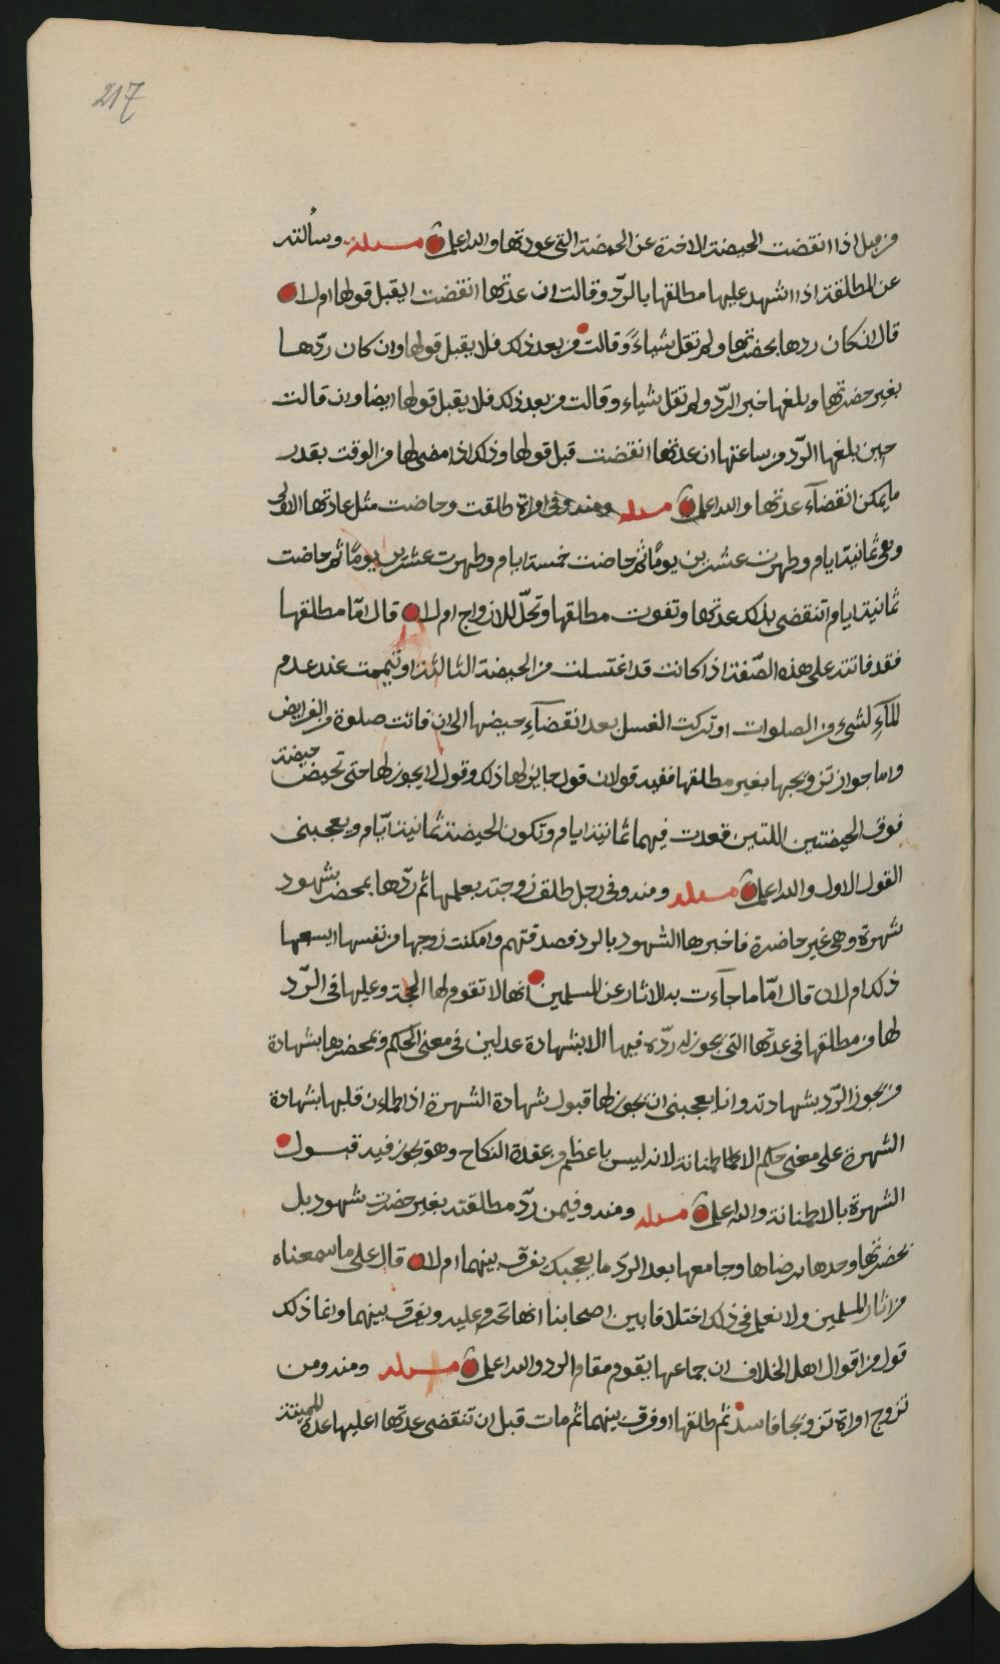 217
من قبل اذا انقضت الحيضة الاخرة عن الحيضة التي عودتها والله اعلم مسئلة وسألته
عن المطلقة اذا اشهد عليها مطلقها بالردّ وقالت ان عدتها انقضت ايقبل قولها ام لا
قال ان كان ردها بحضرتها ولم تقل شياءً وقالت من بعد ذلك فلا يقبل قولها وان كان ردّها
بغير حضرتها وبلغها خبر الردّ ولم تقل شياء وقالت من بعد ذلك فلا يقبل قولها ايضا وان قالت
حين بلغها الردّ من ساعتها ان عدتها انقضت قبل قولها وذلك اذا مضى لها من الوقت بقدر
ما يمكن انقضآء عدتها والله اعلم مسئلة ومنه وفي امراة طلقت وحاضت مثل عادتها الاولى
وهي ثمانية ايام وطهرت عشرين يومًا ثم حاضت خمسة ايام وطهرت عشرين يومًا ثم حاضت
ثمانية ايام اتنقضي بذلك عدتها وتفوت مطلقها وتحلّ للازواج ام لا قال امّا مطلقها
فقد فاتته على هذه الصّفة اذا كانت قد اغتسلت من الحيضة الثالثة او تيممت عند عدم
المآءِ لشيء من الصلوات او تركت الغسل بعد انقضآءِ حيضها الى ان فاتت صلوة من الفرايض
واما جواز تزويجها بغير مطلقها ففيه قولان قول جايز لها ذلك وقول لا يجوز لها حتى تحيض حيضة
فوق الحيضتين اللتين قعدت فيهما ثمانية ايام وتكون الحيضة ثمانية ايّام ويعجبني
القول الاول والله اعلم مسئلة ومنه وفي رجل طلق زوجته بعلمها ثم ردّها بمحضر شهود
شهرة وهي غير حاضرة فاخبرها الشهود بالرد فصدقتهم وامكنت زوجها من نفسها ايسعها
ذلك ام لا قال امّا ما جآءت به الاثار عن المسلمين انها لا تقوم لها الحجة وعليها في الردّ
لها من مطلقها في عدتها التي يجوز له ردّه فيها الا بشهادة عدلين في معنى الحكم وبمحضرها بشهادة
من يجوز الردّ بشهادته وانا يعجبني ان يجوز لها قبول شهادة الشهرة اذا اطمأن قلبها بشهادة
الشهرة على معنى حكم الاطمانة لانه ليس باعظم من عقدة النكاح وهو يجوز فيه قبول
الشهرة بالاطمنانة والله اعلم مسئلة ومنه وفيمن ردّ مطلقته بغير حضرت شهود بل
بحضرتها وحدها برضاها وجامعها بعد الردّ ما يعجبك يفرّق بينهما ام لا قال على ما سمعناه
من اثار المسلمين ولا نعلم في ذلك اختلافا بين اصحابنا انها تحرم عليه ويفرق بينهما وانما ذلك
قول من اقوال اهل الخلاف ان جماعها يقوم مقام الرد والله اعلم مسئلة ومنه ومن
تزوج امراة تزويجا فاسد ثم طلقها او فرق بينهما ثم مات قبل ان تنقضي عدتها اعليها عدة المميتة